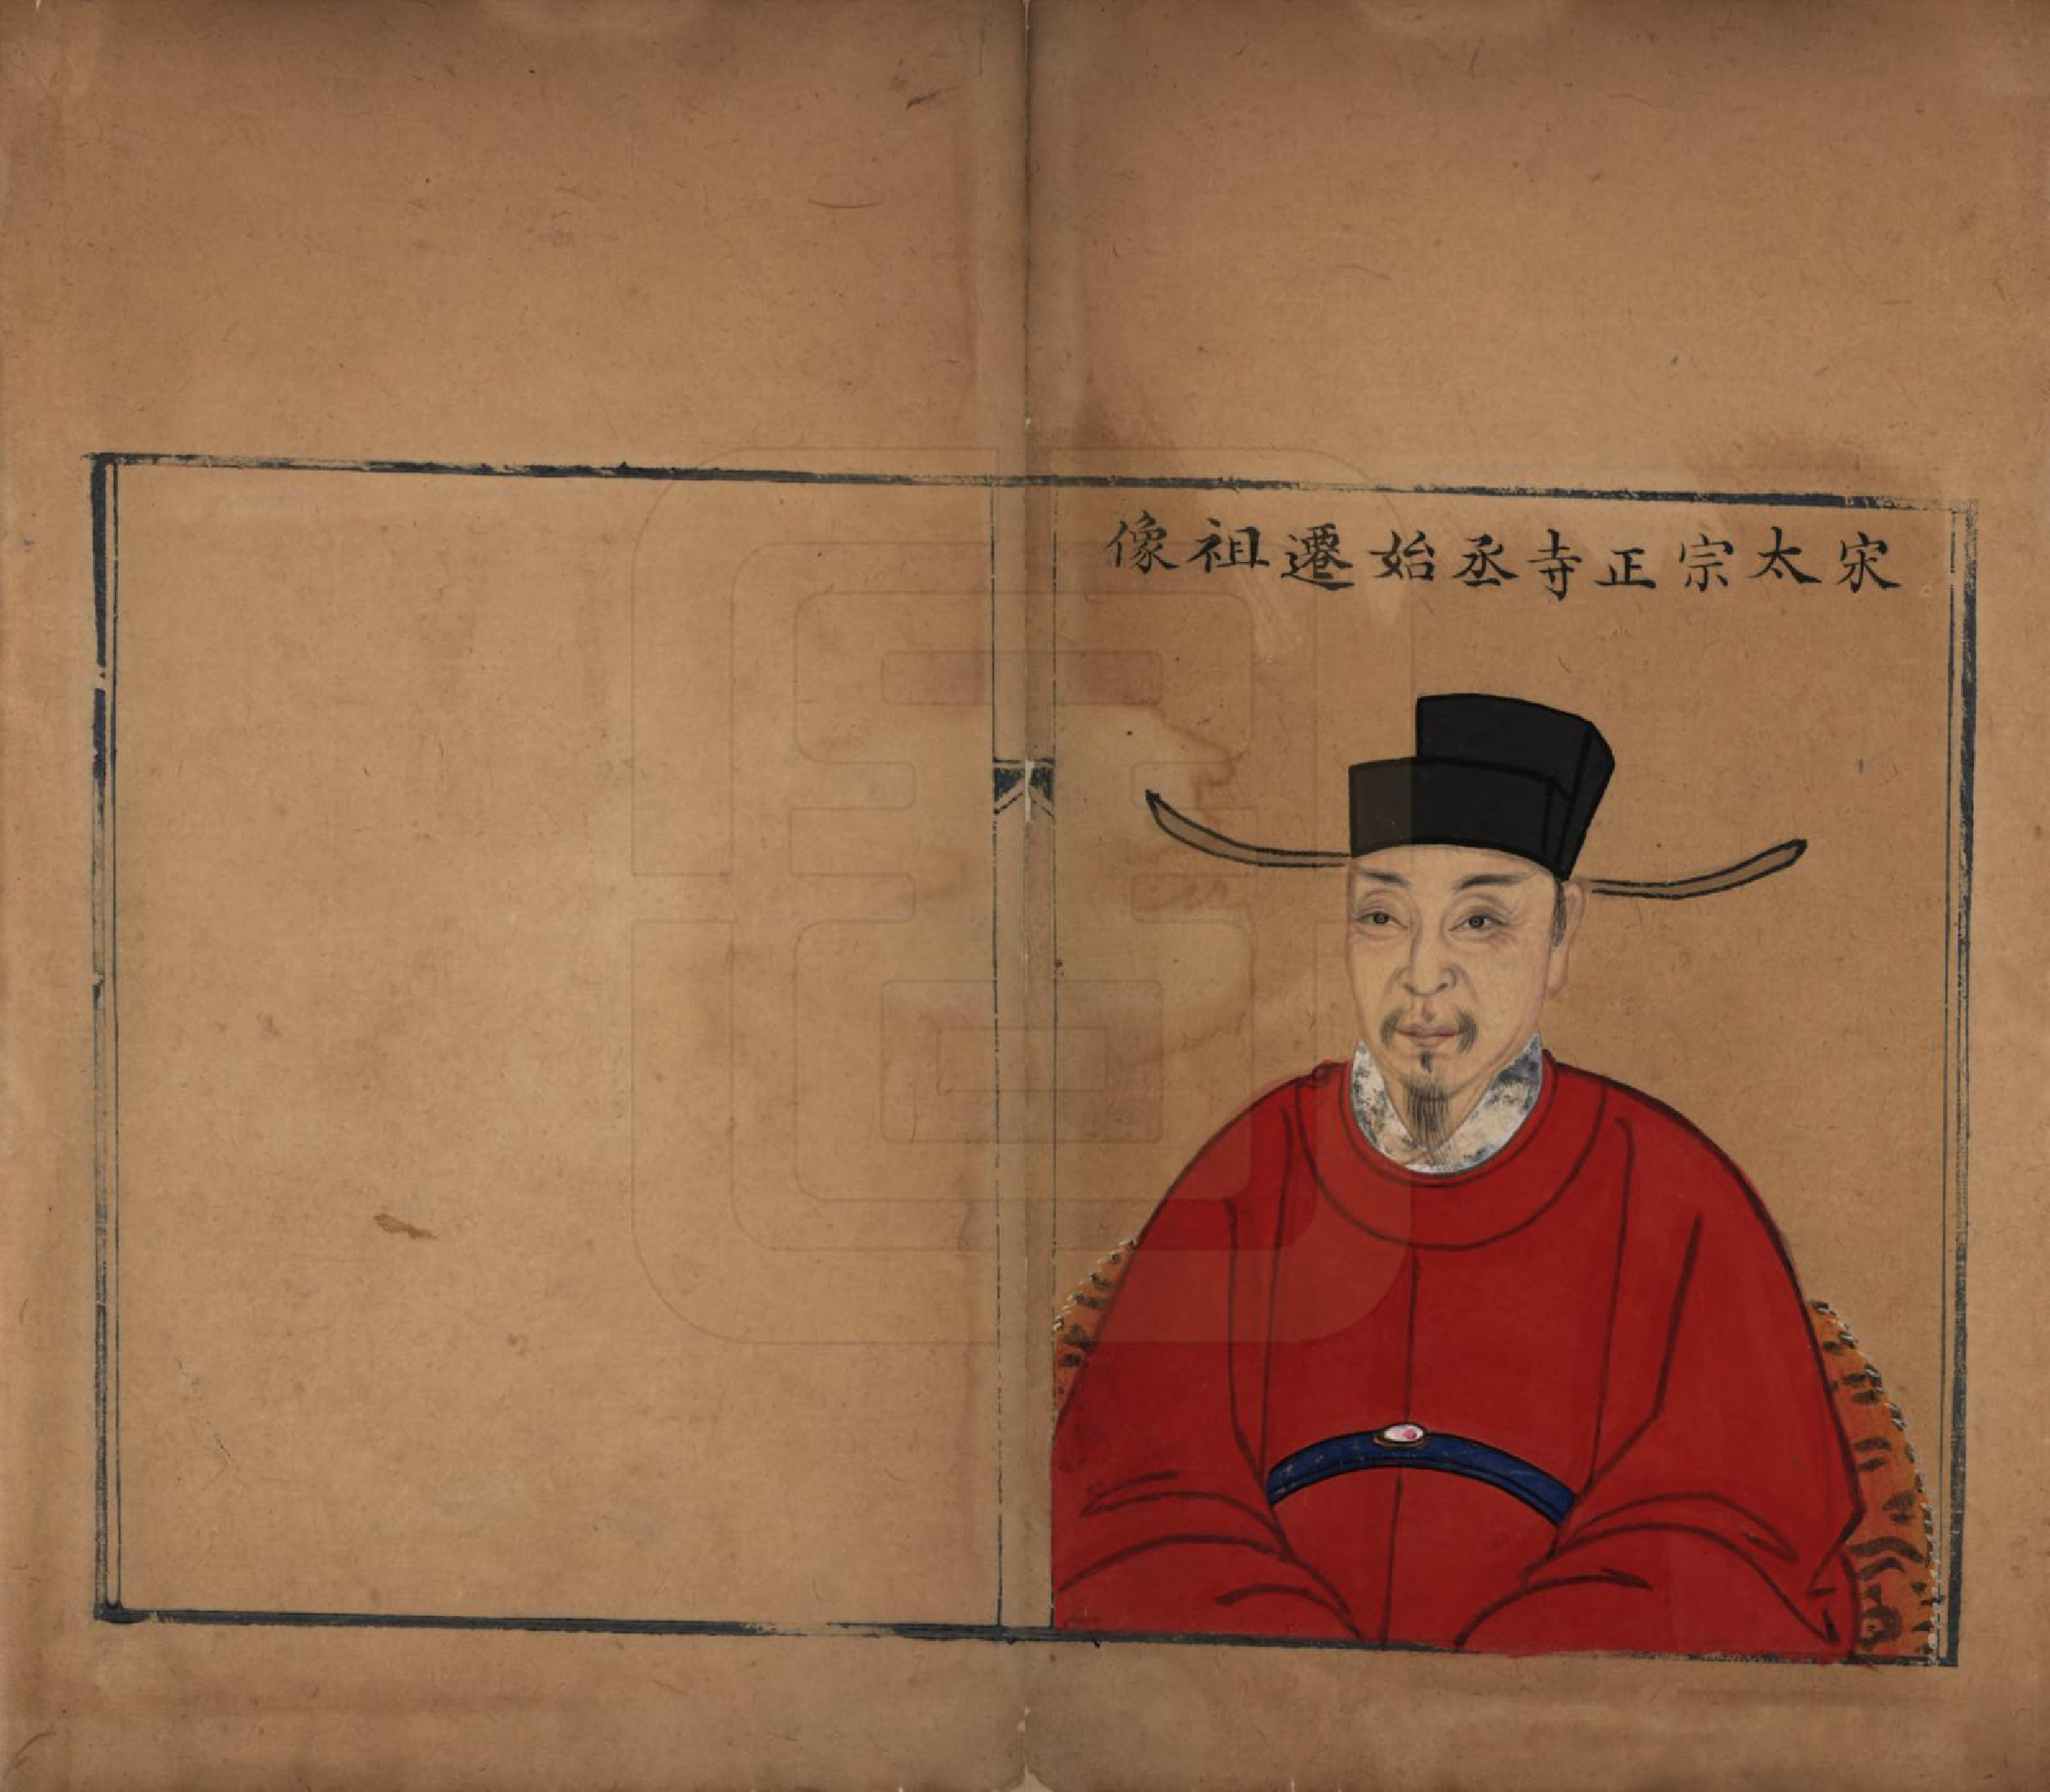 宋太宗正寺丞始遷祖像